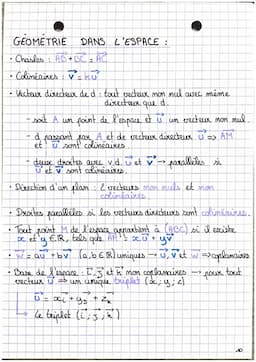 GÉOMÉTRIE DANS L'ESPACE :
• Chasles : AB⃗ + BC⃗ = AC⃗
• Colinéaires : v⃗ = k u⃗
• Vecteur directeur de d : tout vecteur non nul avec même
directeur que d.
- soit A un point de l'espace et u⃗ un vecteur non nul.
- d passant par A et de vecteur directeur u⃗ ⇒ AM⃗
et u⃗ sont colinéaires.
- deux droites avec v.d. u⃗ et v⃗ → parallèles si
u⃗ et v⃗ sont colinéaires.
• Direction d'un plan : 2 vecteurs non nuls et non
colinéaires
• Droites parallèles si les vecteurs directeurs sont colinéaires.
• Tout point M de l'espace appartient à (ABC) si il existe
x et y ∈ ℝ, tels que AM⃗ = x u⃗ + y v⃗
• w⃗ = a u⃗ + b v⃗ (a, b ∈ ℝ) uniques → u⃗, v⃗ et w⃗ ⇒ coplanaires
• Base de l'espace : i⃗, j⃗ et k⃗ non coplanaires → pour tout
vecteur u⃗ ⇒ un unique triplet (x, y, z)
u⃗ = x i + y j + z k
↳ le triplet (i⃗, j⃗, k⃗)